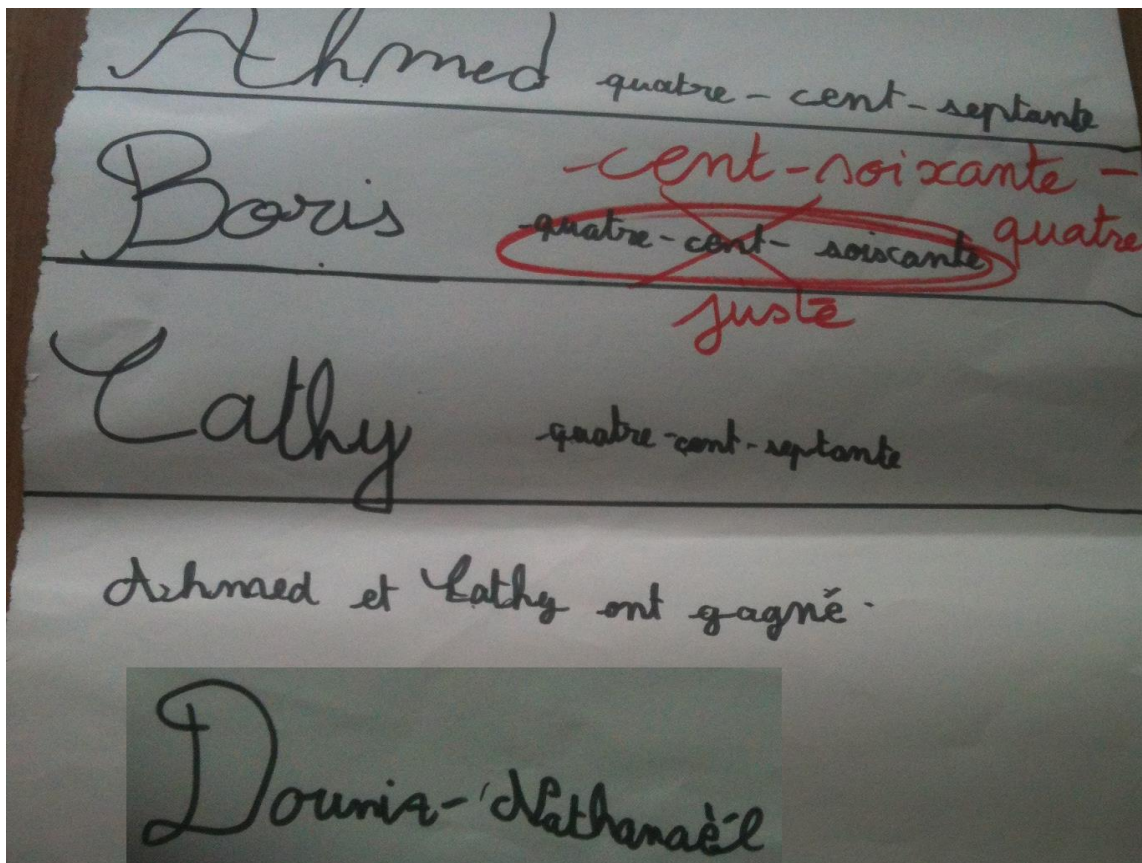 Ahmed quatre-cent-septante
cent-soixante-
quatre
Boris quatre-cent-soiscante
juste
Cathy quatre-cent-septante
Ahmed et Cathy ont gagné.
Dounia-Nathanaèl